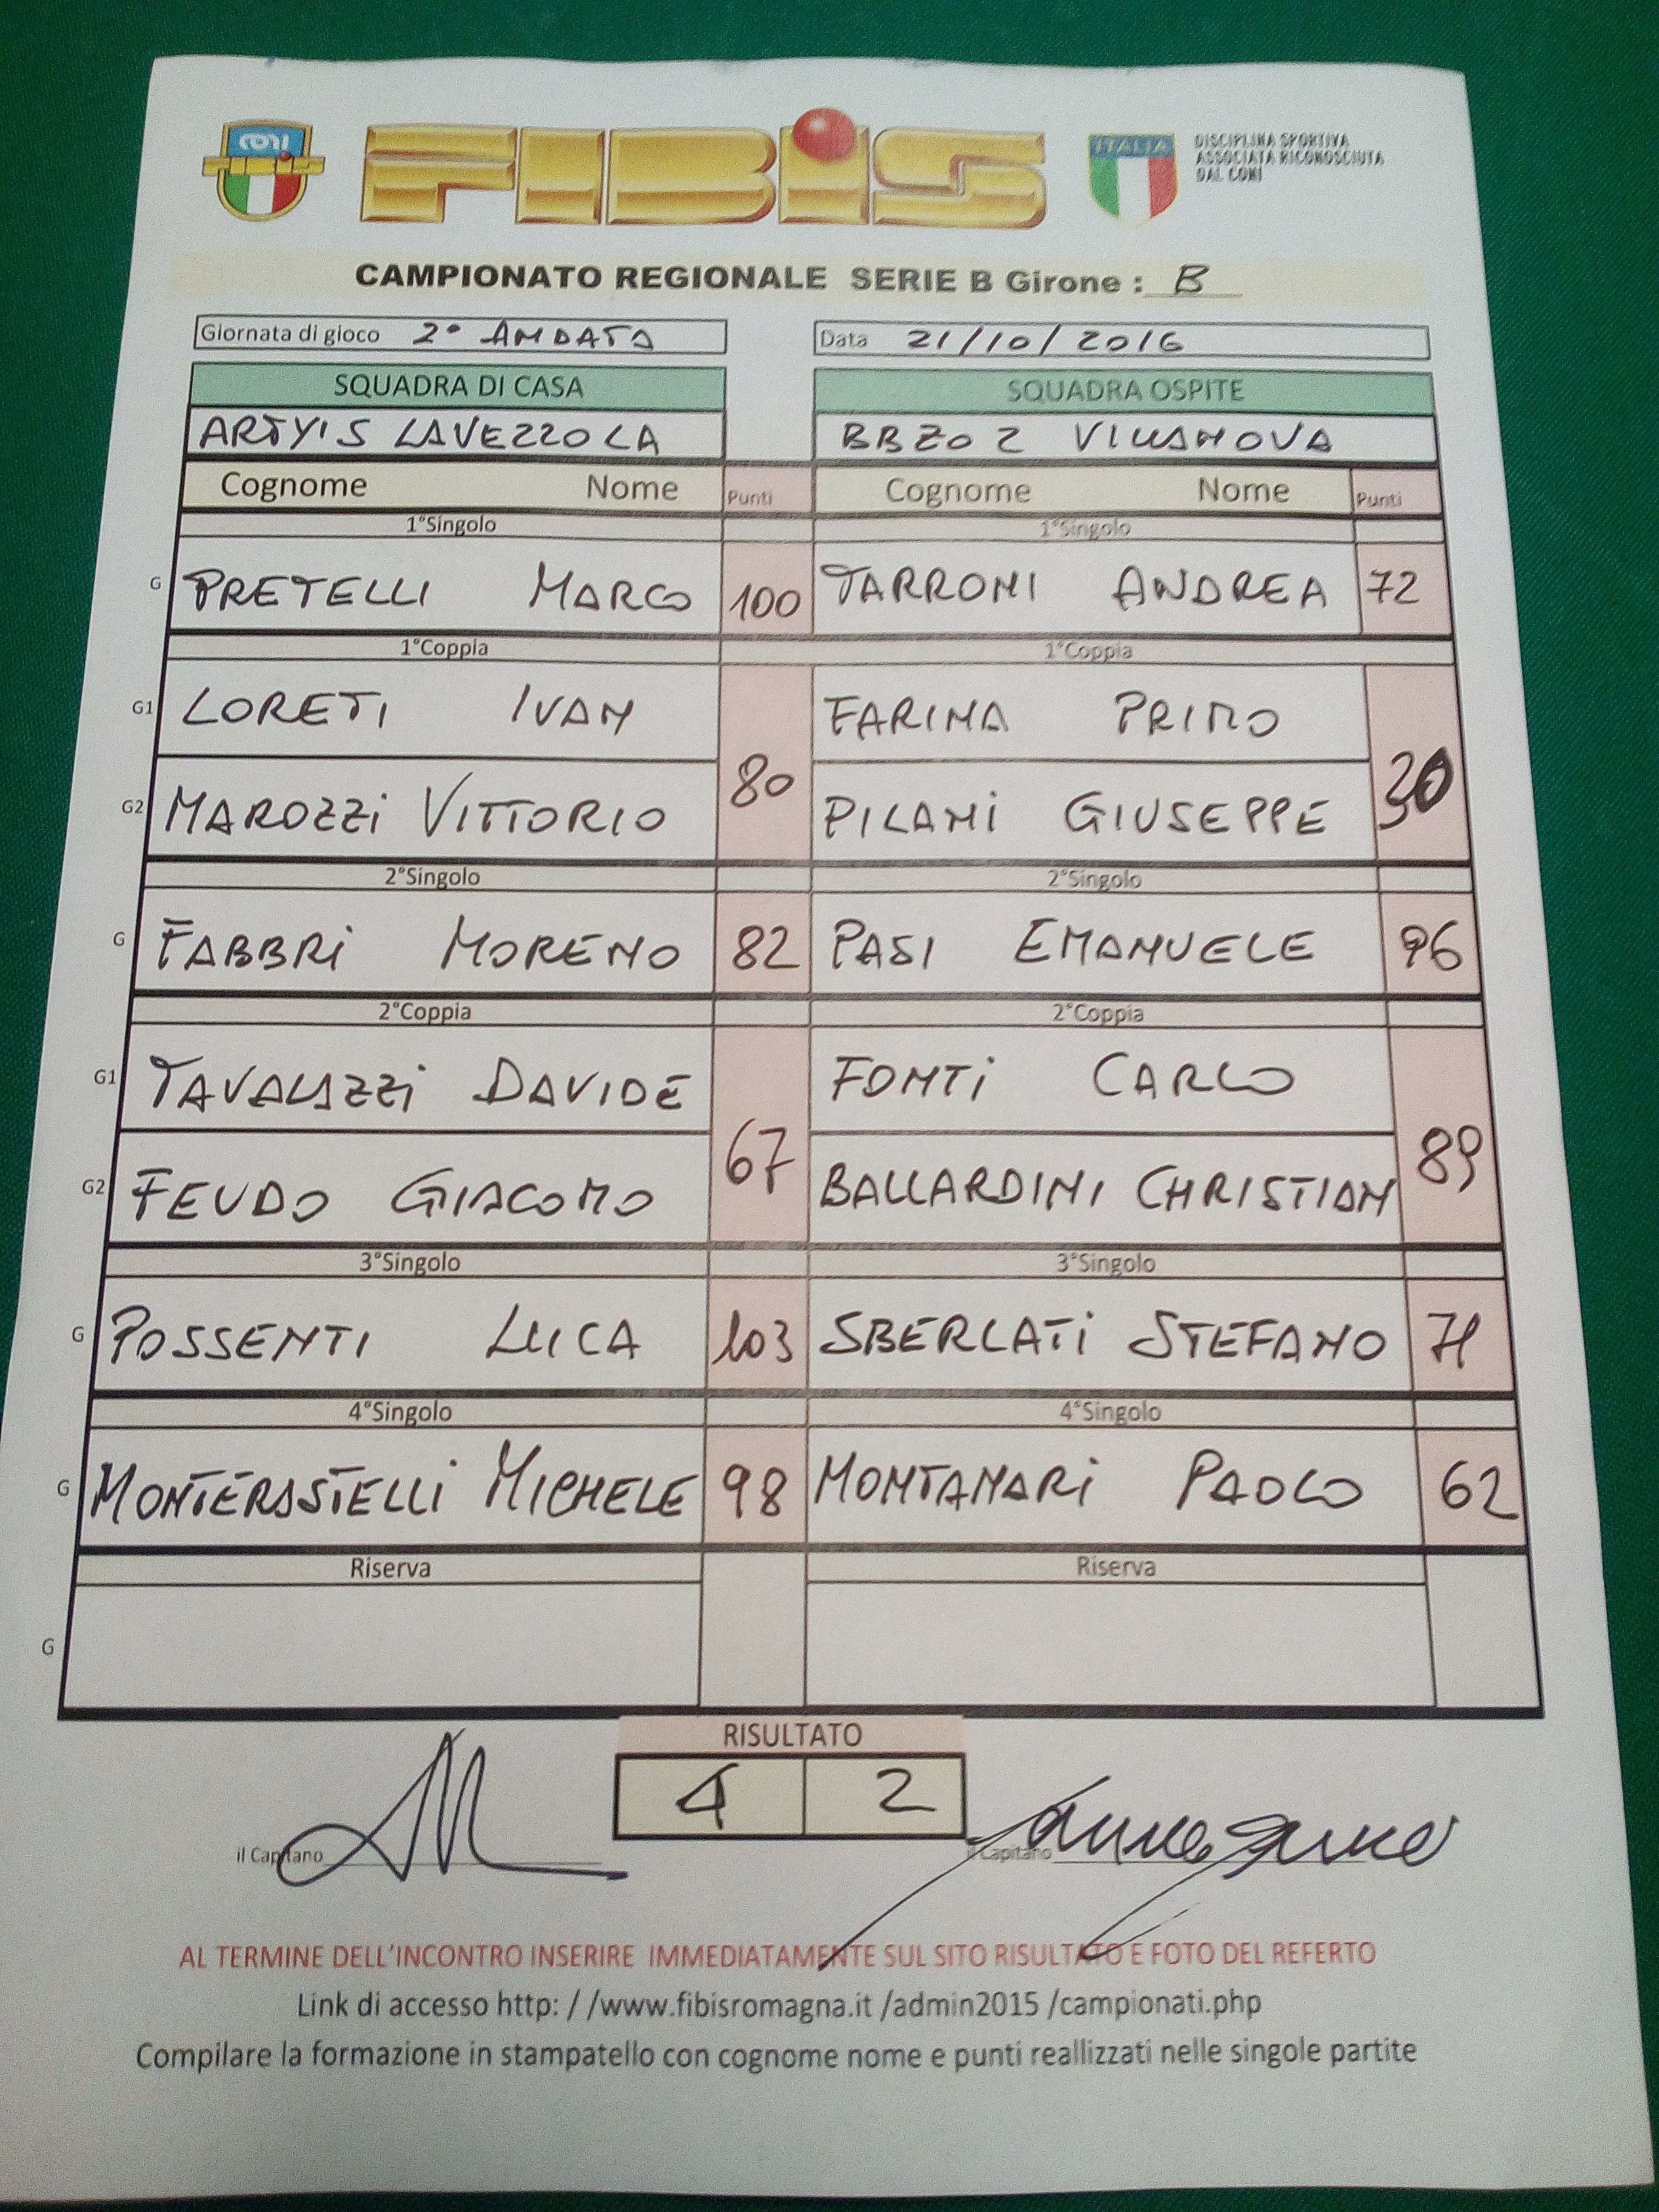 CONI
FIBiS
ITALIA
DISCIPLINA SPORTIVA
ASSOCIATA RICONOSCIUTA
DAL CONI
CAMPIONATO REGIONALE SERIE B Girone : B
Giornata di gioco 2° ANDATA Data 21/10/2016
SQUADRA DI CASA SQUADRA OSPITE
ARTYIS LAVEZZOLA BBZOZ VILLANOVA
Cognome Nome Punti Cognome Nome Punti
1°Singolo 1°Singolo
G PRETELLI MARCO 100 TARRONI ANDREA 72
1°Coppia 1°Coppia
G1 LORETI IVAN FARINA PRIMO
80
G2 MAROZZi VITTORIO PILANi GIUSEPPE
2°Singolo 2°Singolo
G FABBRi MORENO 82 PASI EMANUELE 96
2°Coppia 2°Coppia
G1 TAVALAZZi DAVIDE FONTi CARLO
67 89
G2 FEUDO GIACOMO BALLARDINI CHRISTIAN
3°Singolo 3°Singolo
G POSSENTI LUCA 103 SBERLATi STEFANO 71
4°Singolo 4°Singolo
G MONTERASTELLi MICHELE 98 MONTANARi PAOLO 62
Riserva Riserva
G
RISULTATO
4 2
il Capitano il Capitano
AL TERMINE DELL'INCONTRO INSERIRE IMMEDIATAMENTE SUL SITO RISULTATO E FOTO DEL REFERTO
Link di accesso http: / /www.fibisromagna.it /admin2015 /campionati.php
Compilare la formazione in stampatello con cognome nome e punti reallizzati nelle singole partite